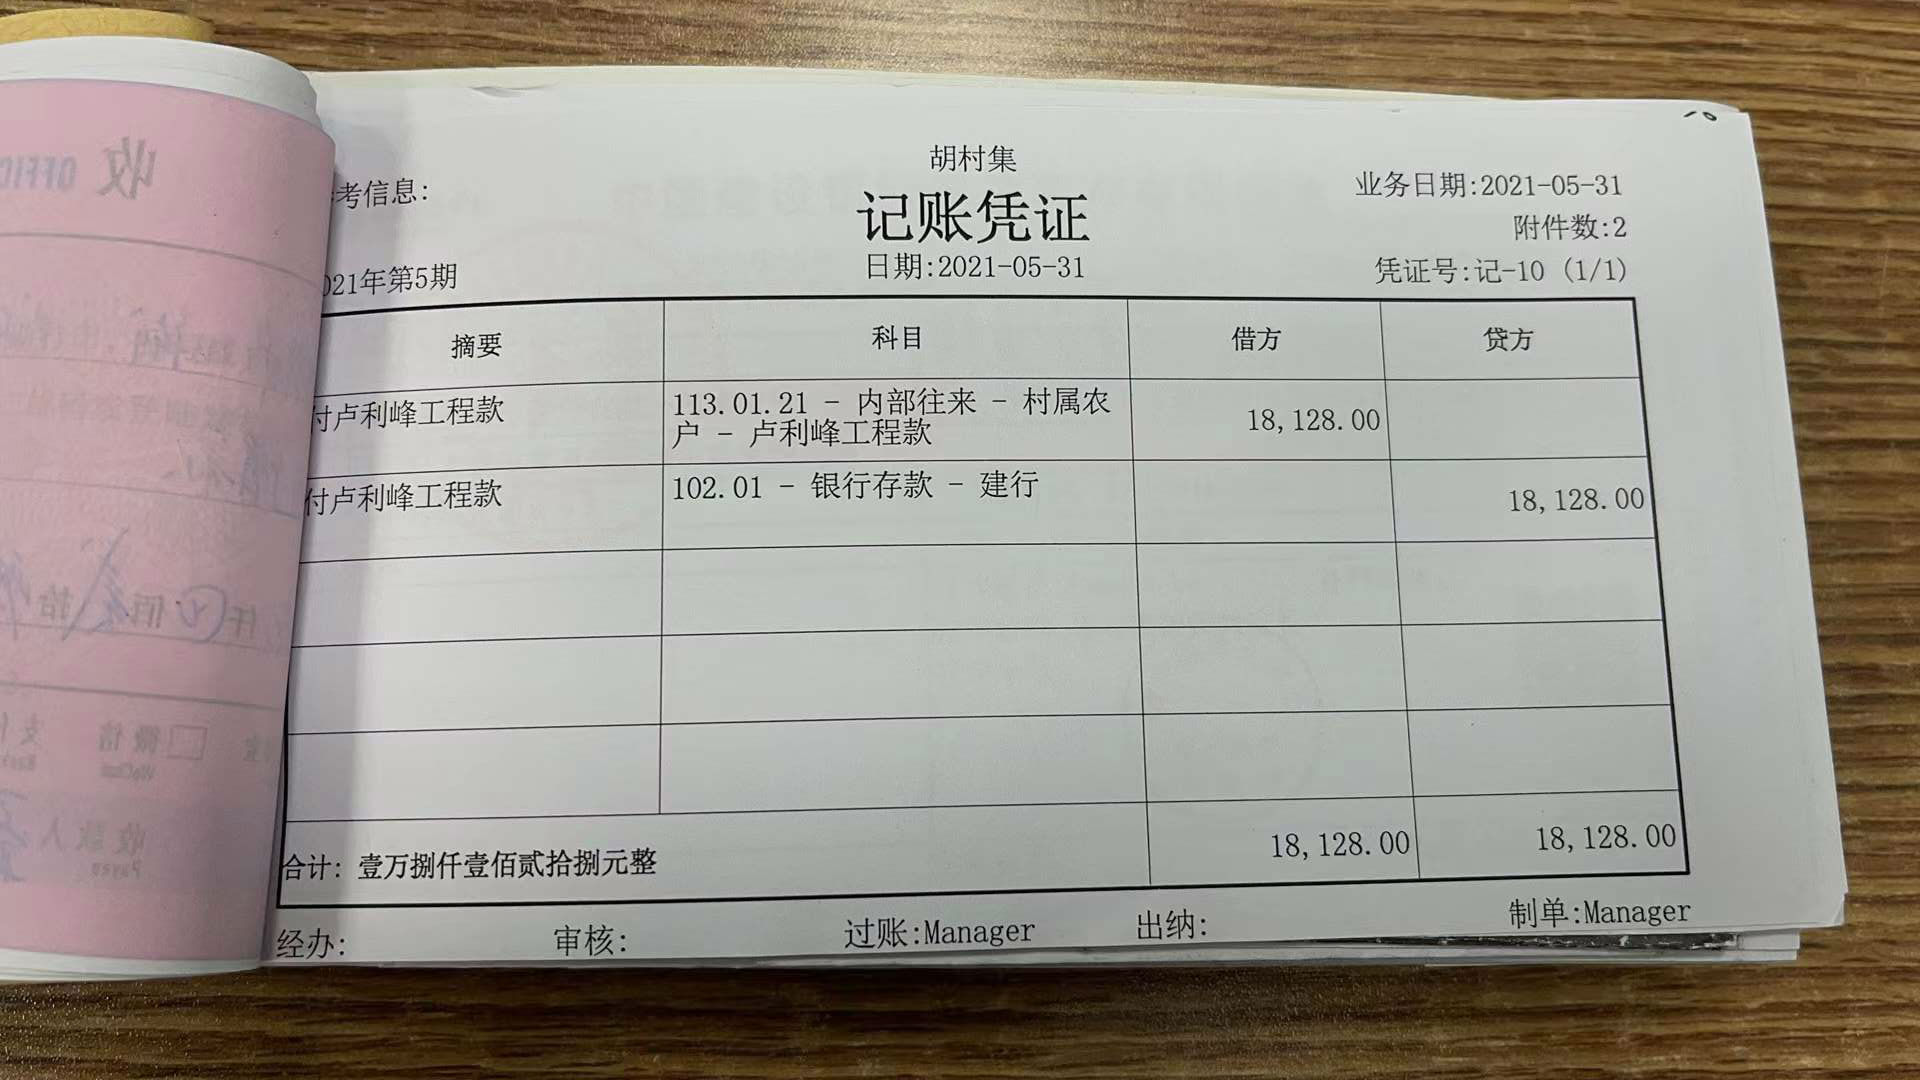 胡村集
考信息:
记账凭证
业务日期:2021-05-31
附件数:2
021年第5期
日期:2021-05-31
凭证号:记-10 (1/1)
摘要 科目 借方 贷方
付卢利峰工程款 113.01.21 - 内部往来 - 村属农 18,128.00
户 - 卢利峰工程款
付卢利峰工程款 102.01 - 银行存款 - 建行 18,128.00
合计: 壹万捌仟壹佰贰拾捌元整 18,128.00 18,128.00
经办: 审核: 过账:Manager 出纳: 制单:Manager